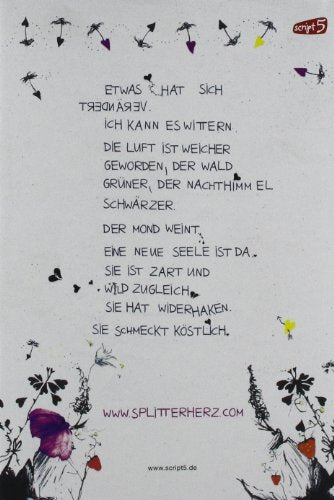 script 5
ETWAS HAT SICH
VERÄNDERT.
ICH KANN ES WITTERN.
DIE LUFT IST WEICHER
GEWORDEN, DER WALD
GRÜNER, DER NACHTHIMMEL
SCHWÄRZER.
DER MOND WEINT.
EINE NEUE SEELE IST DA.
SIE IST ZART UND
WILD ZUGLEICH.
SIE HAT WIDERHAKEN.
SIE SCHMECKT KÖSTLICH.
WWW.SPLITTERHERZ.COM
www.script5.de